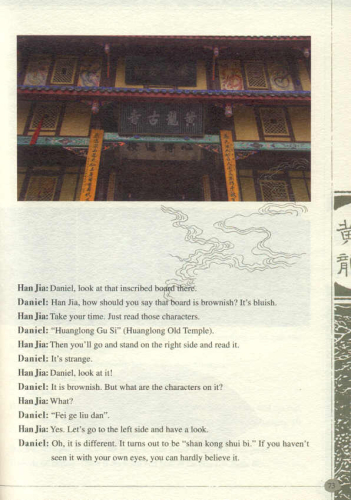 黃龍古寺
黄龍
Han Jia: Daniel, look at that inscribed board there.
Daniel: Han Jia, how should you say that board is brownish? It's bluish.
Han Jia: Take your time. Just read those characters.
Daniel: “Huanglong Gu Si” (Huanglong Old Temple).
Han Jia: Then you'll go and stand on the right side and read it.
Daniel: It's strange.
Han Jia: Daniel, look at it!
Daniel: It is brownish. But what are the characters on it?
Han Jia: What?
Daniel: “Fei ge liu dan”.
Han Jia: Yes. Let's go to the left side and have a look.
Daniel: Oh, it is different. It turns out to be “shan kong shui bi.” If you haven't
seen it with your own eyes, you can hardly believe it.